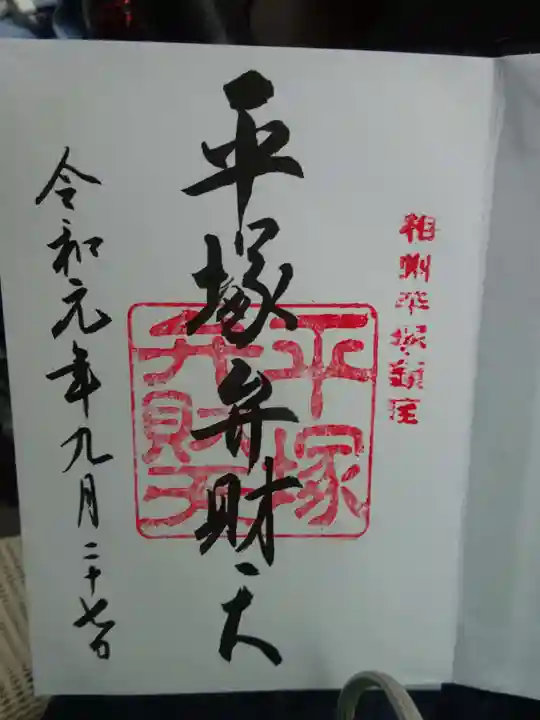 相州平塚鎮座
平塚弁財天
平塚
弁財天
令和元年九月二十七日